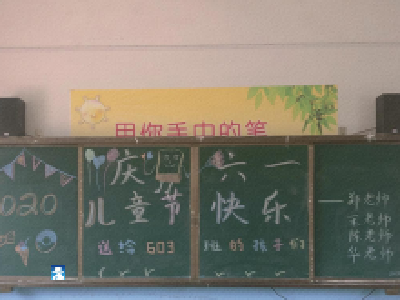 用你手中的笔
2020
庆六一
儿童节快乐
送给603班的孩子们
一郑老师
王老师
陈老师
华老师